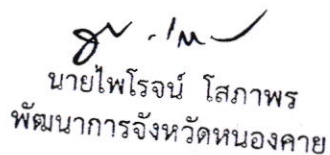 นายไพโรจน์ โสภาพร
พัฒนาการจังหวัดหนองคาย